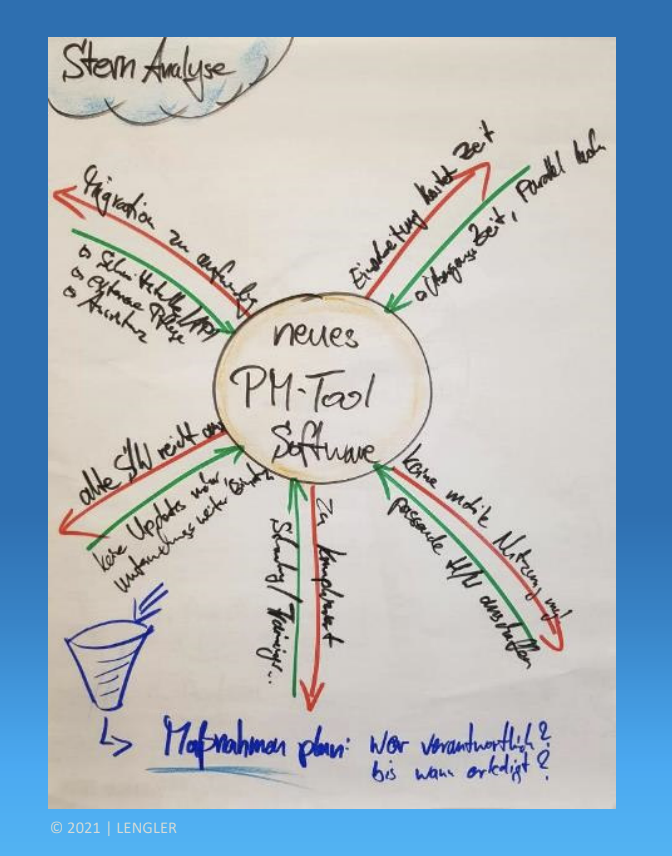 Stern Analyse
Migration zu aufwendig
o Schnittstelle/API
o externe Pflege
Einarbeitung kostet Zeit
o Übergangszeit, Parallel
neues
PM-Tool
Software
alte S/W reicht aus
keine Updates mehr
zu kompliziert
Schulung/Trainings..
keine mobile Nutzung mögl
passende H/W anschaffen
Maßnahmen plan: Wer verantwortlich?
bis wann erledigt?
© 2021 | LENGLER